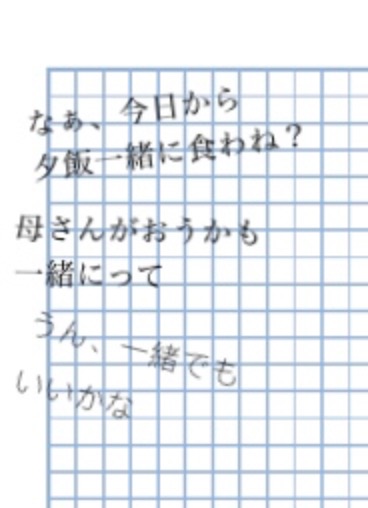 なぁ、今日から
夕飯一緒に食わね？
母さんがおうかも
一緒にって
うん、一緒でも
いいかな